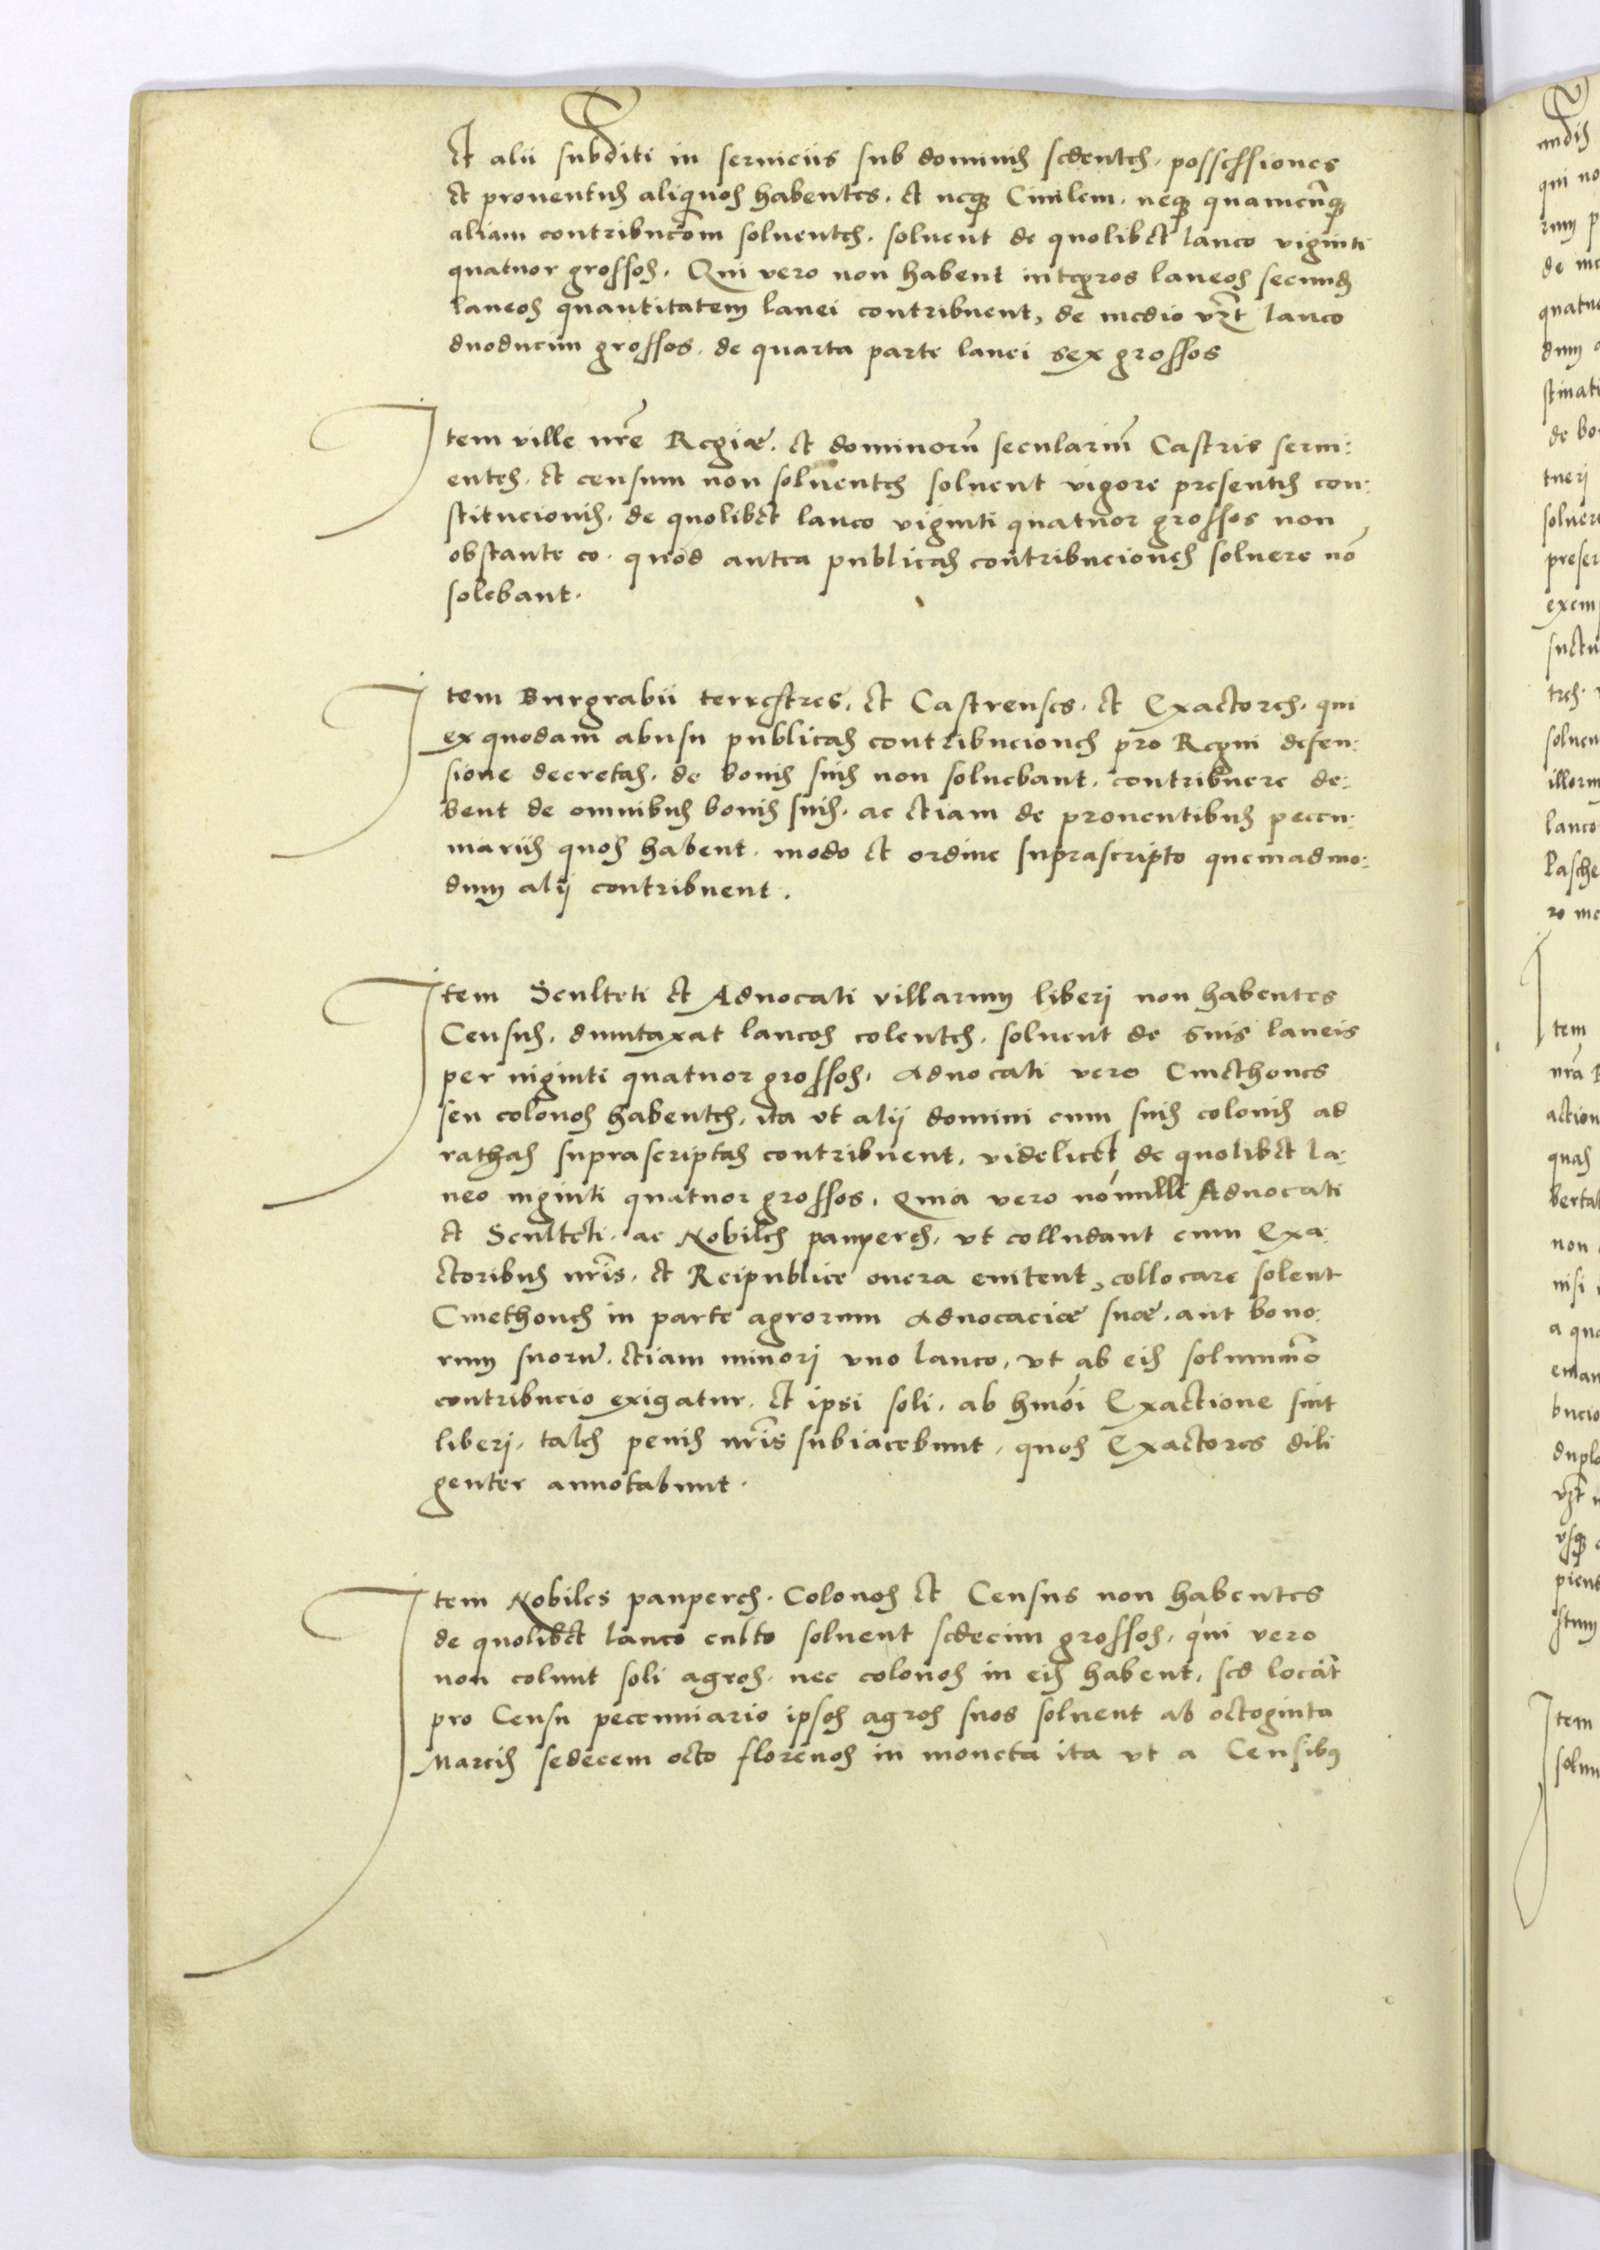 Et alii subditi in seruiciis sub dominis sedentes, possessiones
et prouentus aliquos habentes, et neque Ciuilem, neque quamcunque
aliam contribucionem soluentes, soluent de quolibet laneo viginti
quatuor grossos. Qui vero non habent integros laneos secundum
laneos quantitatem lanei contribuent, de medio vizt laneo
duodecim grossos, de quarta parte lanei sex grossos
Item ville nr̃e Regiæ, et dominorũ secularium Castris serui:
entes, et censum non soluentes soluent vigore presentis con:
stitucionis, de quolibet laneo viginti quatuor grossos non
obstante eo, quod antea publicas contribuciones soluere nõ
solebant.
Item Burgrabii terrestres, et Castrenses, et Exactores, qui
ex quodam abusu publicas contribuciones pro Regni defen:
sione decretas, de bonis suis non soluebant, contribuere de:
bent de omnibus bonis suis, ac etiam de prouentibus pecu:
niariis quos habent, modo et ordine suprascripto quemadmo:
dum alij contribuent.
Item Sculteti et Aduocati villarum liberi non habentes
Census, dumtaxat laneos colentes, soluent de suis laneis
per uiginti quatuor grossos, Aduocati vero Cmethones
seu colonos habentes, ita vt alij domini cum suis colonis ad
rathas suprascriptas contribuent, videlicet de quolibet la:
neo uiginti quatuor grossos. Quia vero nõnulli Aduocati
et Sculteti, ac Nobiles pauperes, vt colludant cum Exa:
ctoribus nr̃is, et Reipublice onera euitent, collocare solent
Cmethones in parte agrorum Aduocaciæ suæ, aut bono:
rum suorũ, etiam minori vno laneo, vt ab eis solummõ
contribucio exigatur, et ipsi soli, ab hmõi Exactione sint
liberi, tales penis nr̃is subiacebunt, quos Exactores dili
genter annotabunt.
Item Nobiles pauperes, Colonos et Census non habentes
de quolibet laneo culto soluent sedecim grossos, qui vero
non colunt soli agros, nec colonos in eis habent, sed locãt
pro Censu pecuniario ipsos agros suos soluent ab octoginta
Marcis sedecem octo florenos in moneta ita vt a Censibus